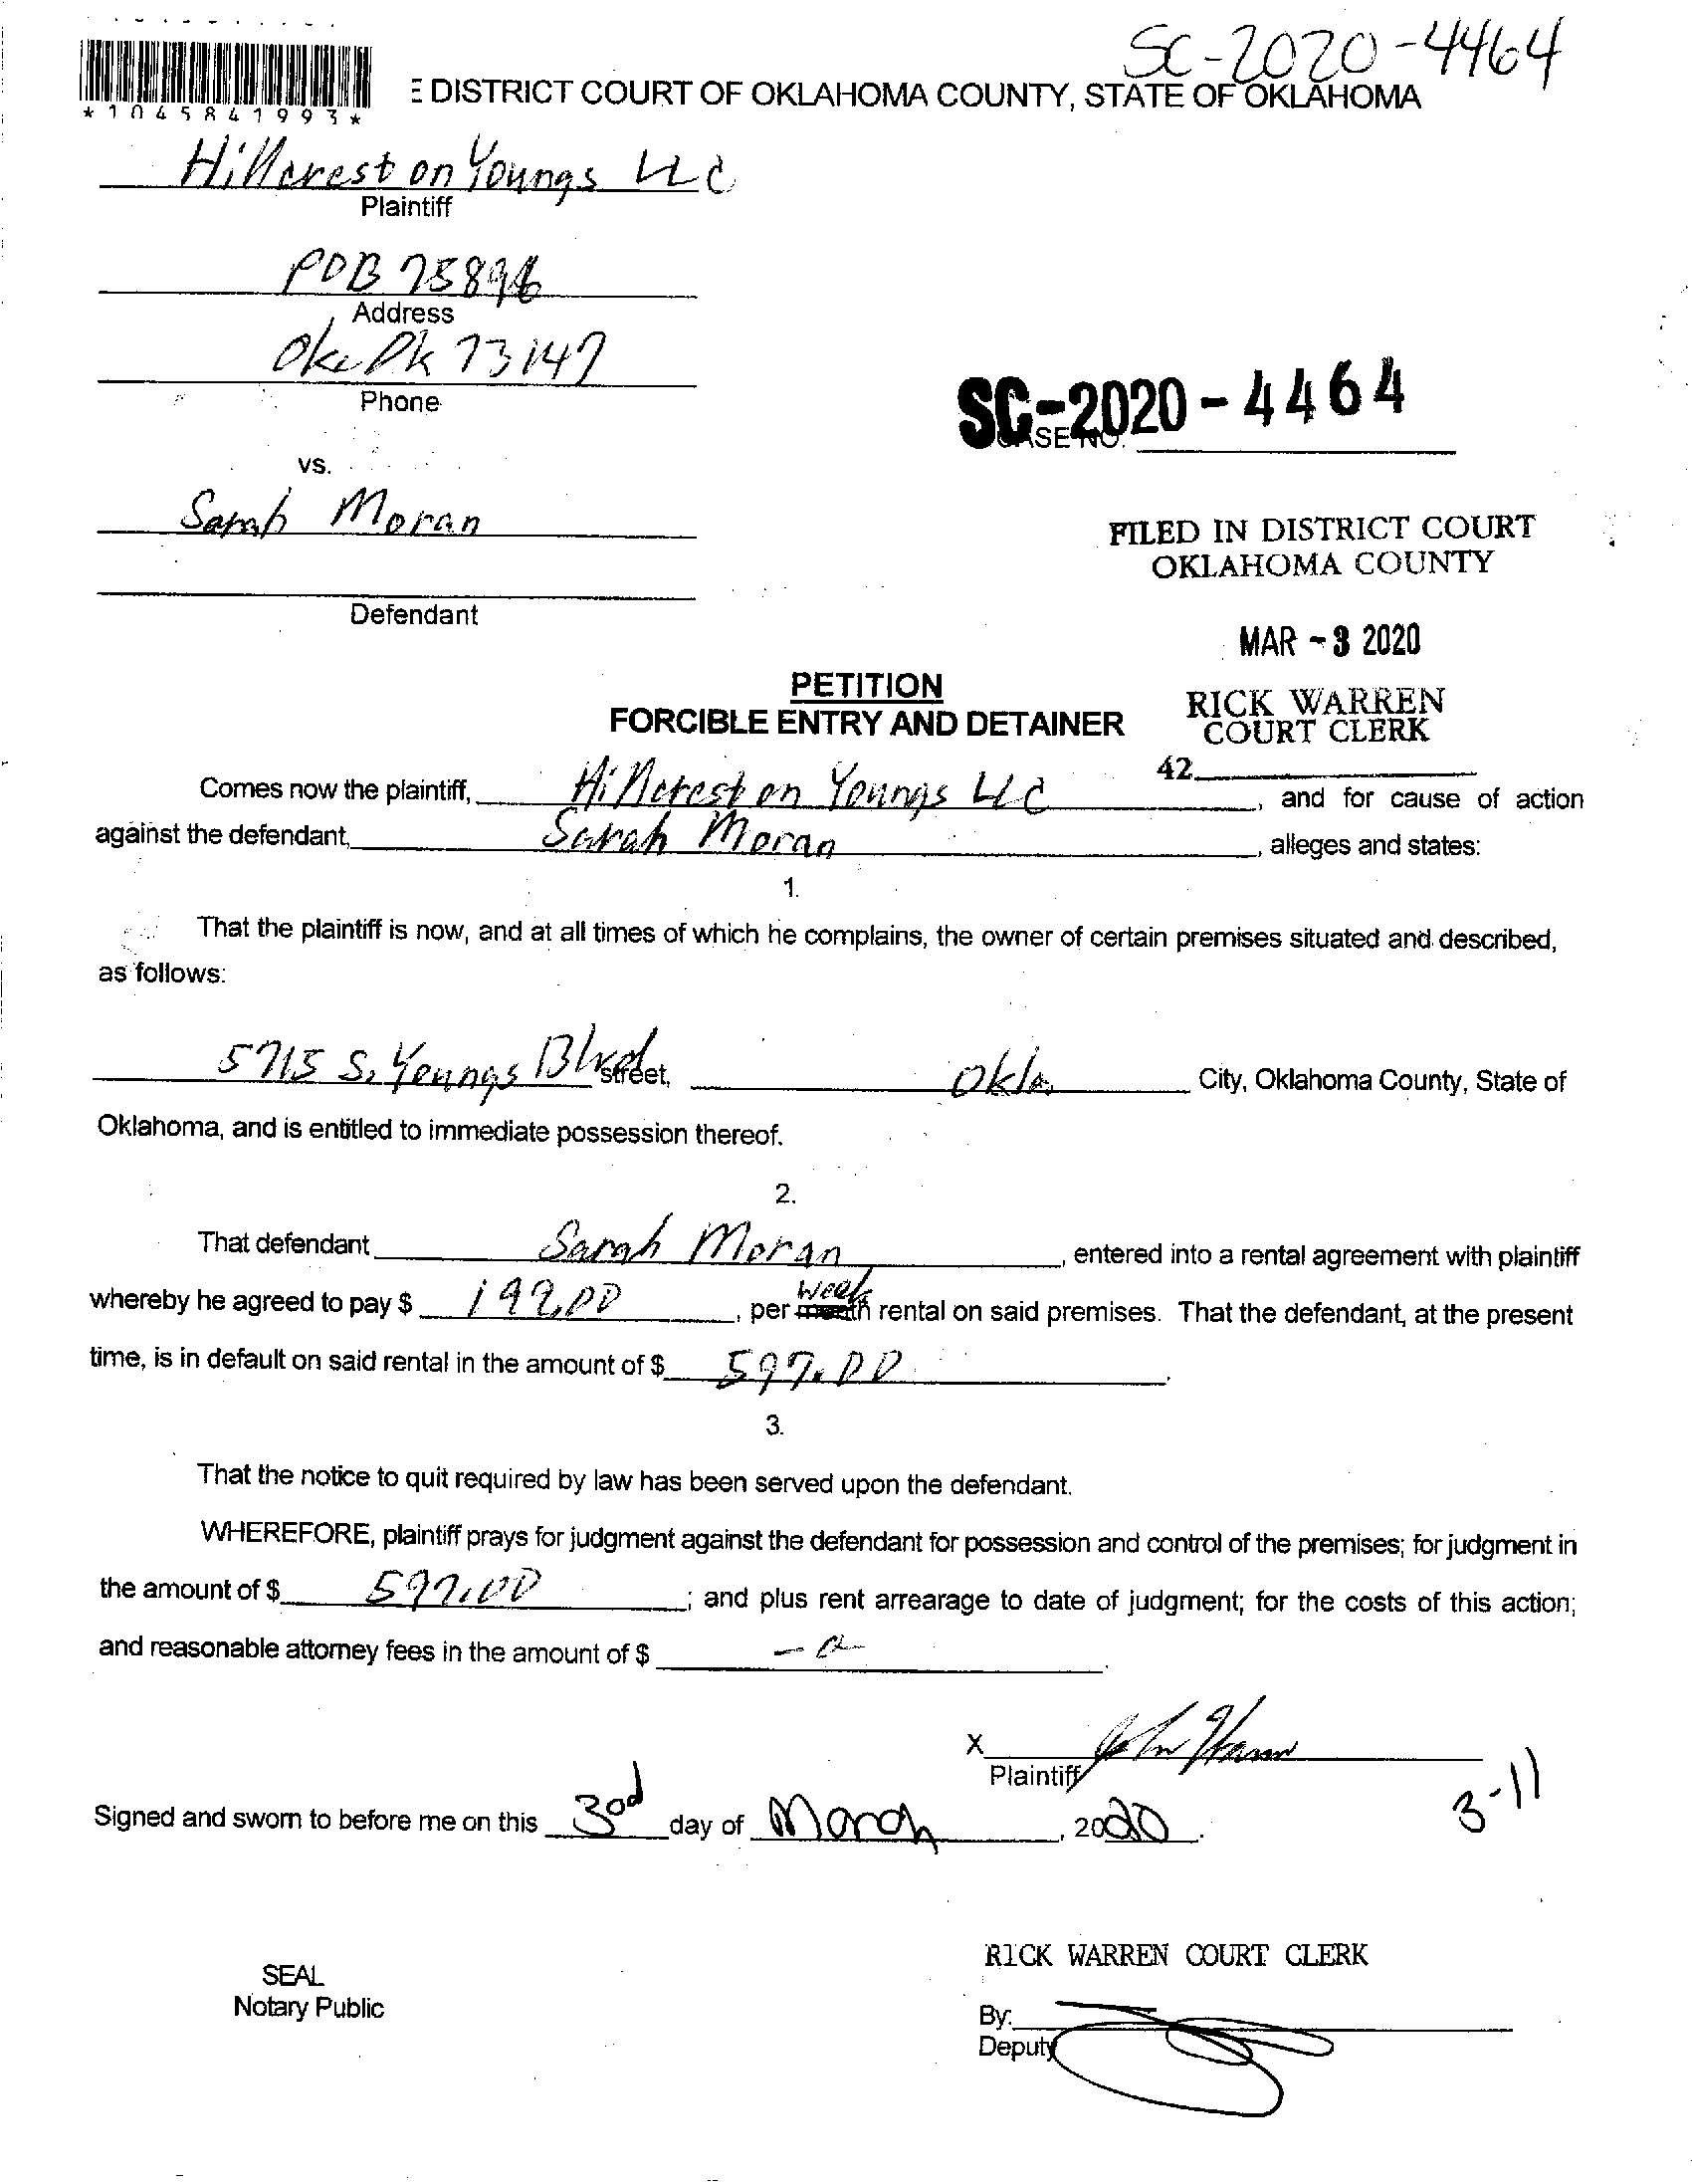 SC-2020-4464
*1045841993*
E DISTRICT COURT OF OKLAHOMA COUNTY, STATE OF OKLAHOMA
Hillcrest on Youngs LLC
Plaintiff
POB 75896
Address
Okc Ok 73147
Phone
SC-2020-4464
CASE NO.
vs.
Sarah Moran
Defendant
FILED IN DISTRICT COURT
OKLAHOMA COUNTY
MAR -3 2020
RICK WARREN
COURT CLERK
42
PETITION
FORCIBLE ENTRY AND DETAINER
Comes now the plaintiff, Hillcrest on Youngs LLC, and for cause of action
against the defendant, Sarah Moran, alleges and states:
1.
That the plaintiff is now, and at all times of which he complains, the owner of certain premises situated and described,
as follows:
5715 S. Youngs Blvd street, Okla City, Oklahoma County, State of
Oklahoma, and is entitled to immediate possession thereof.
2.
That defendant Sarah Moran, entered into a rental agreement with plaintiff
week
whereby he agreed to pay $ 199.00, per month rental on said premises. That the defendant, at the present
time, is in default on said rental in the amount of $ 597.00.
3.
That the notice to quit required by law has been served upon the defendant.
WHEREFORE, plaintiff prays for judgment against the defendant for possession and control of the premises; for judgment in
the amount of $ 597.00; and plus rent arrearage to date of judgment; for the costs of this action;
and reasonable attorney fees in the amount of $ .
X
Plaintiff
3-11
Signed and sworn to before me on this 3rd day of March, 2020.
RICK WARREN COURT CLERK
SEAL
Notary Public
By:
Deputy